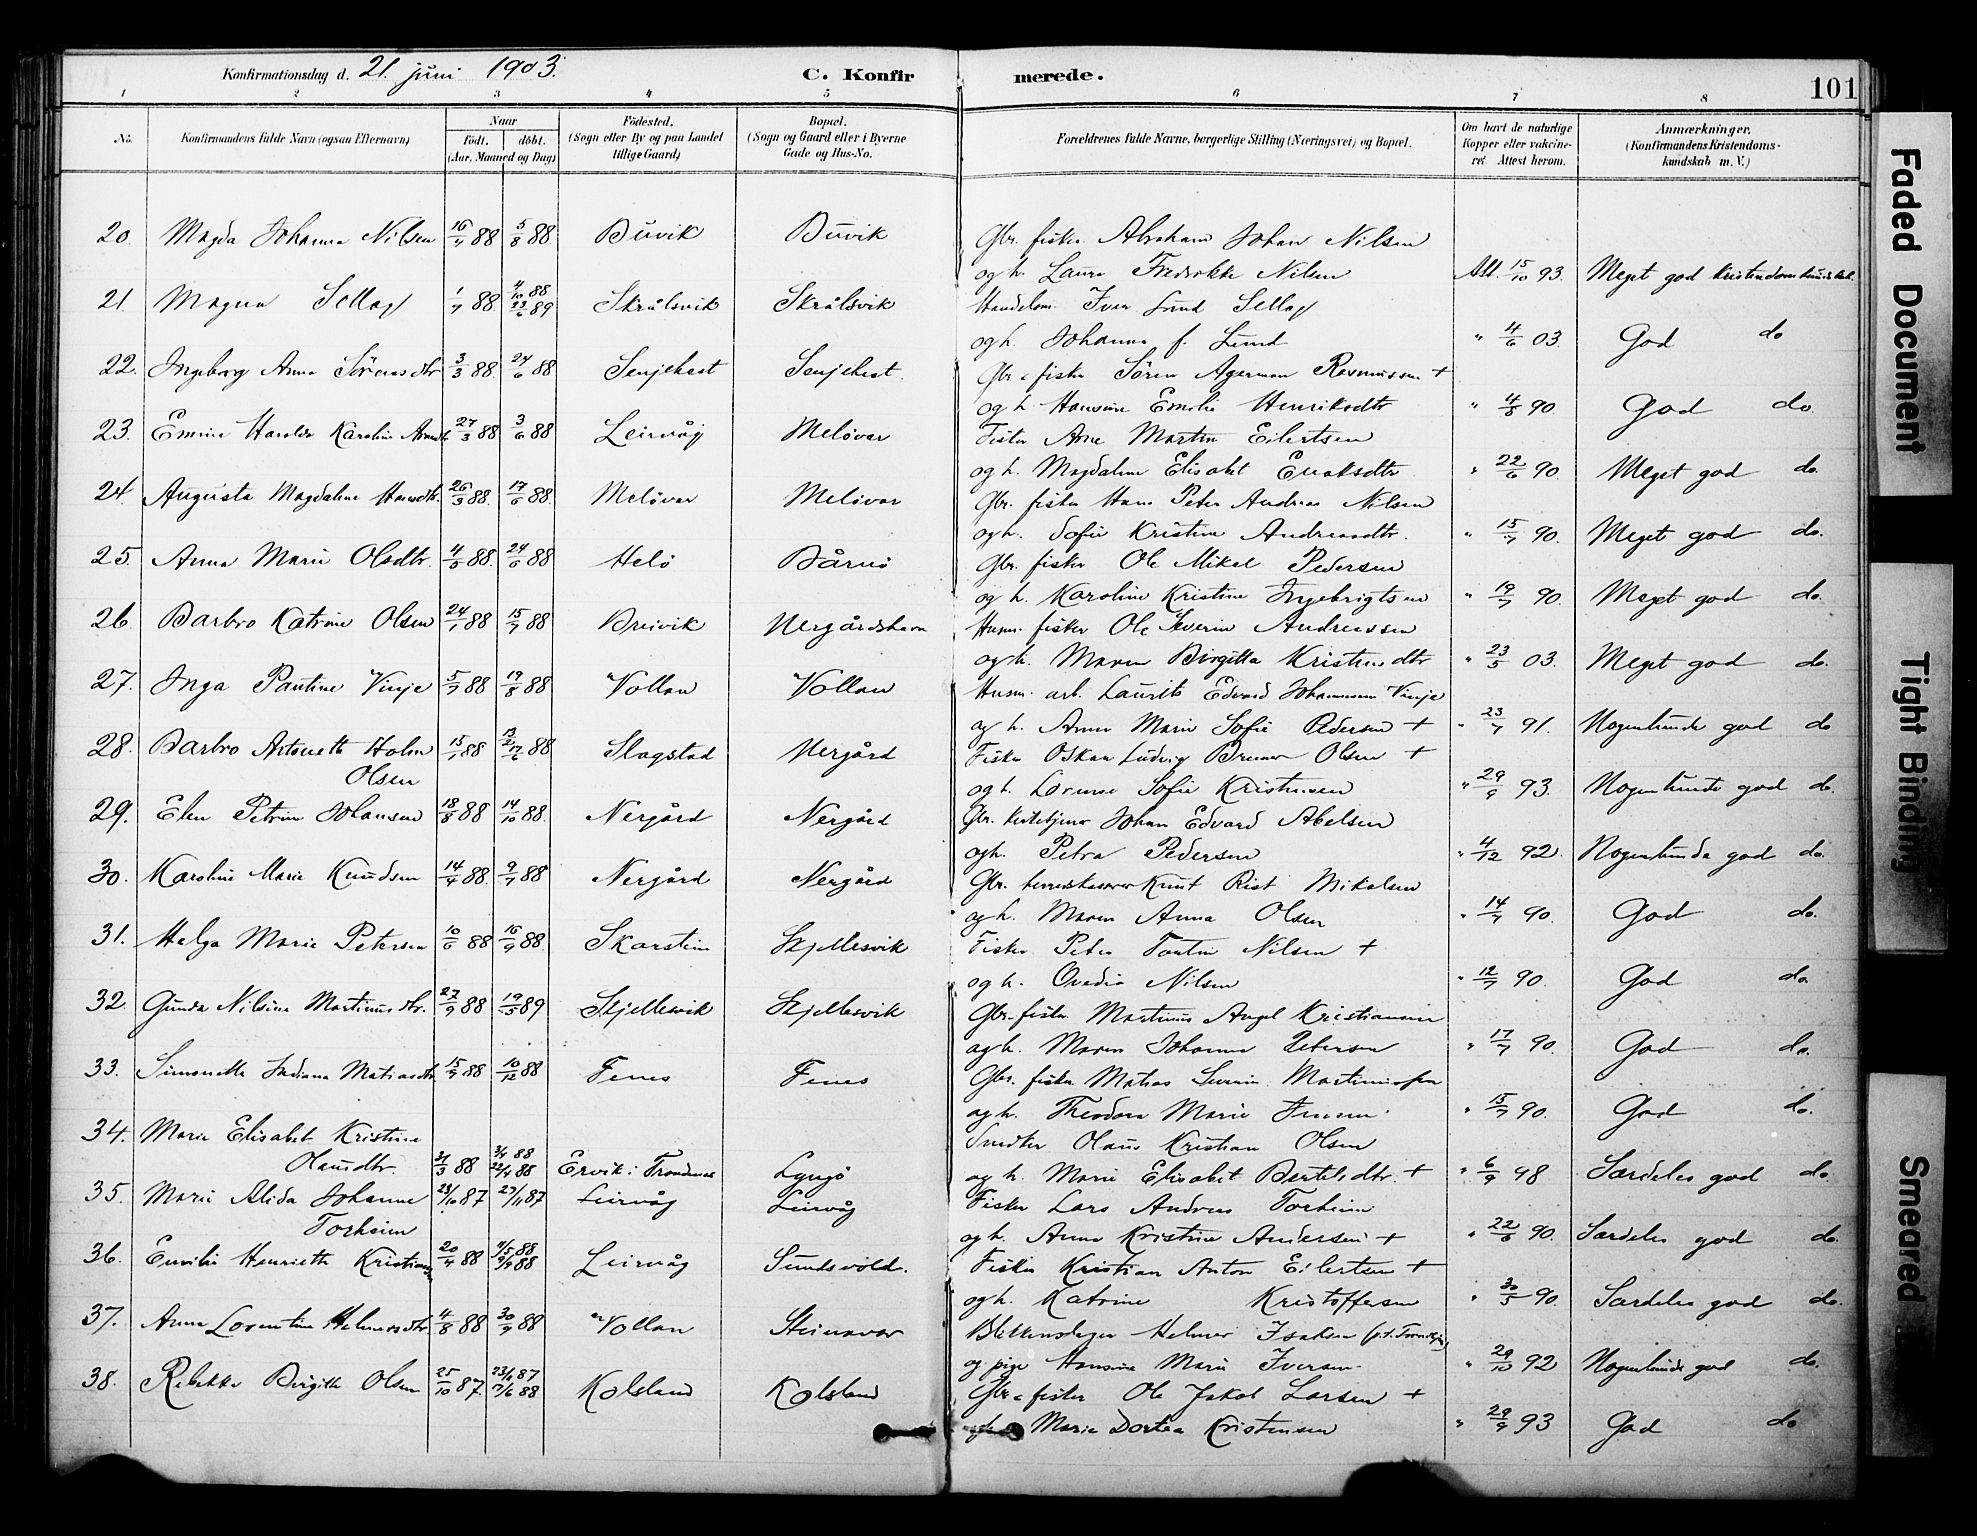 Konfirmationsdag d. 21. juni 1903. C. Konfirmerede. 101
1 2 3 4 5 6 7 8
No. Konfirmandens fulde Navn (ogsaa Efternavn) Naar født. døbt. (Aar, Maaned og Dag) Fødested. (Sogn eller By og paa Landet tillige Gaard) Bopæl. (Sogn og Gaard eller i Byerne Gade og Hus-No. Forældrenes fulde Navne, borgerlige Stilling (Næringsvei) og Bopæl. Om havt de naturlige Kopper eller vakcineret Attest herom. Anmærkninger. (Konfirmandens Kristendomskundskab m. V.)
20. Magda Johanna Nilsen 16/7 88 5/8 88. Buvik Buvik Gbr. fisker Abraham Johan Nilsen
og h. Laura Fredrikke Nilsen Att. 15/10 93. Meget god kristendomskundskab
21. Magna Sellag 1/7 88. 4/10 88 23/6 89 Skrålsvik Skrålsvik Handelsm. Iver Lund Sellag
og h. Johanna f. Lund " 4/6 03. God do
22. Ingeborg Anna Sörensdtr 3/3 88. 24/6 88 Senjehest Senjehest. Gbr. fisker Sören Agerman Rasmussen +
og h. Hansine Emilie Henriksdtr " 4/8 90. God do.
23. Emine Harolda Karoline Arnedtr 27/3 88 3/6 88 Leirvåg Melövar Fisker Arne Martin Eilertsen
og h. Magdalena Elisabet Enoksdtr " 22/6 90. Meget god do.
24. Augusta Magdalena Hansdtr. 26/3 88. 17/6 88. Melövar Melövar Gbr. fisker Hans Peter Andreas Nilsen
og h. Sofie Kristine Andreasdtr. " 15/7 90. Meget god do.
25. Anna Marie Olsdtr. 4/5 88. 24/6 88 Helö Bårnö Gbr. fisker Ole Mikal Pedersen
og h. Karoline Kristine Ingebrigtsen " 19/7 90. Meget god do.
26. Barbro Katrine Olsen 24/1 88 15/7 88 Breivik Nergårdshavn Husm. fisker Ole Severin Andreassen
og h. Maren Birgitta Kristensdtr " 23/5 03. Meget god do.
27. Inga Pautine Vinje 5/7 88 19/8 88. Vollan Vollan Husm. arb. Laurits Edvard Johannesen Vinje
og h. Anna Marie Sofie Pedersen + " 23/7 91. Nogenlunde god do
28. Barbro Antonette Holm Slagstad Nergård Fisker Oskar Ludvig Brunar Olsen +
Olsen og h. Lovise Sofie Kristensen " 29/9 93. Nogenlunde god do.
29. Elen Petrine Johansen 18/8 88 14/10 88. Nergård Nergård Gbr. kirketjener Johan Edvard Abelsen
og h. Petra Pedersen " 4/12 92. Nogenlunde god do.
30. Karoline Marie Knudsen 14/4 88. 9/7 88 Nergård Nergård Gbr. Knut Rist Mikalsen
og h. Maren Anna Olsen " 14/7 90. God do.
31. Helga Marie Petersen 10/6 88 16/9 88. Skarstein Skjellesvik Fisker Peter Tontin Nilsen +
og h. Ovedia Nilsen " 12/7 90. God do.
32. Gunda Nilsine Martinusdtr. 27/9 88 19/5 89 Skjellesvik Skjellesvik Gbr. fisker Martinus Angel Kristiansen
og h. Maren Johanna Petersen " 17/7 90. God do.
33. Simonette Indiana Matiasdtr. 15/9 88 10/12 88 Fenes Fenes Gbr. fisker Matias Severin Martinussen
og h. Theodora Marie Jensen " 15/7 90. God do.
34. Marie Elisabet Kristine Snedker Olaus Kristian Olsen
Olausdtr. 31/3 88 3/4 88 22/4 88 Ervik i Trondenes Lysö og h. Marie Elisabet Bertelsdtr. + " 6/9 98 Særdeles god do.
35. Marie Alida Johanne 23/10 87 27/11 87 Leirvåg Leirvåg Fisker Lars Andreas Torheim
Torheim og h. Anna Kristine Andersen + " 22/6 90. Særdeles god do.
36. Emilie Henriette Kristians. 20/4 88 9/9 88 Leirvåg Sundsvold. Fisker Kristian Anton Eilertsen +
og h. Katrine Kristoffersen " 30/5 90. Særdeles god do.
37. Anna Lorentine Helmersdtr. 4/8 88 30/9 88 Vollan Steinavar Blikkenslager Helmer Isaksen
og pige Hansine Marie Iversen " 29/10 92 Nogenlunde god do.
38. Rebekka Birgitte Olsen 25/10 87 Kolsland Kolsland Gbr. fisker Ole Jakob Larsen +
og h. Marie Dortea Kristensen " 29/9 93 God do
Faded Document
Tight Binding
Smeared